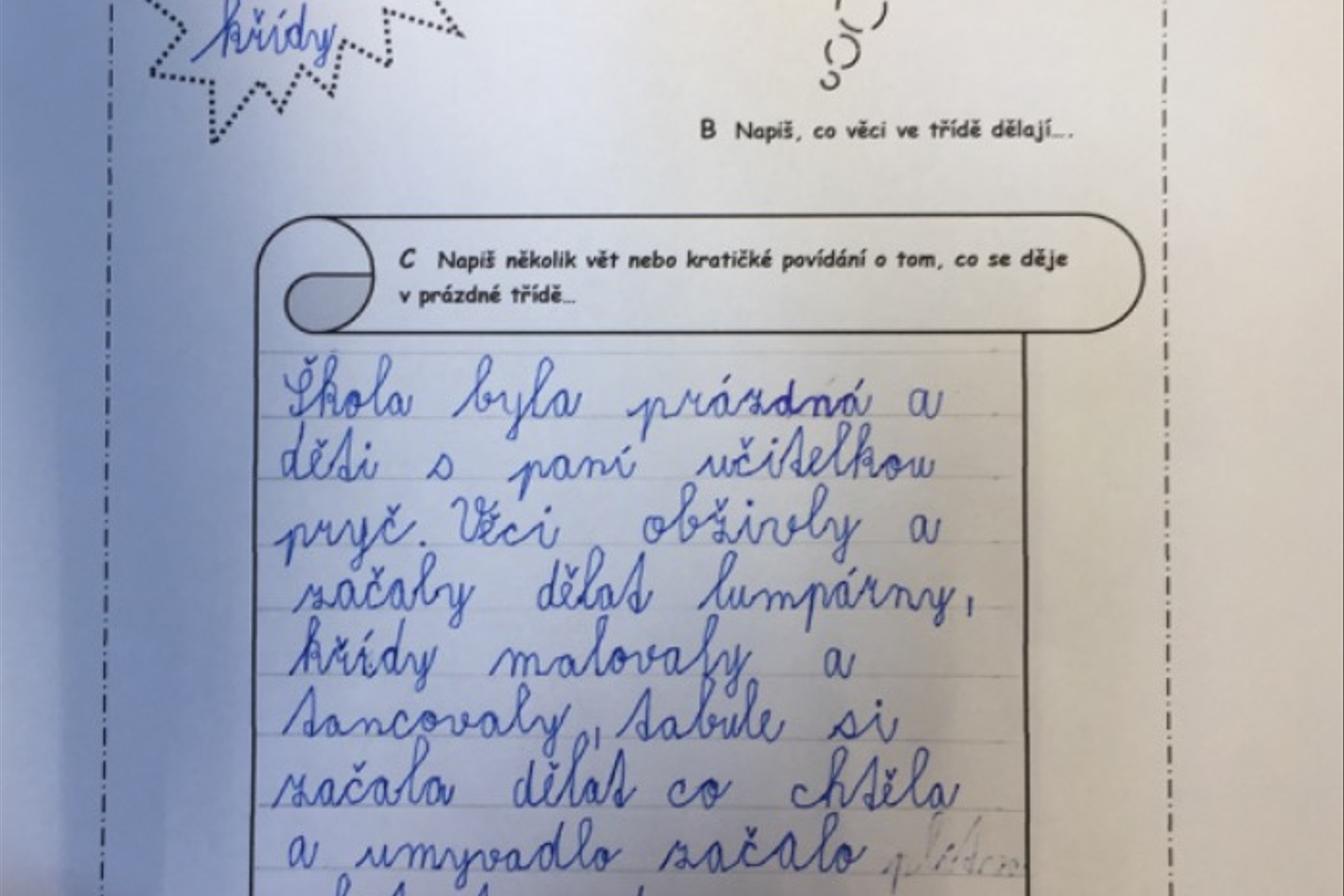 křídy
B Napiš, co věci ve třídě dělají....
C Napiš několik vět nebo kratičké povídání o tom, co se děje
v prázdné třídě...
Škola byla prázdná a
děti s paní učitelkou
pryč. Věci obživly a
začaly dělat lumpárny,
křídy malovaly a
tancovaly, tabule si
začala dělat co chtěla
a umyvadlo začalo